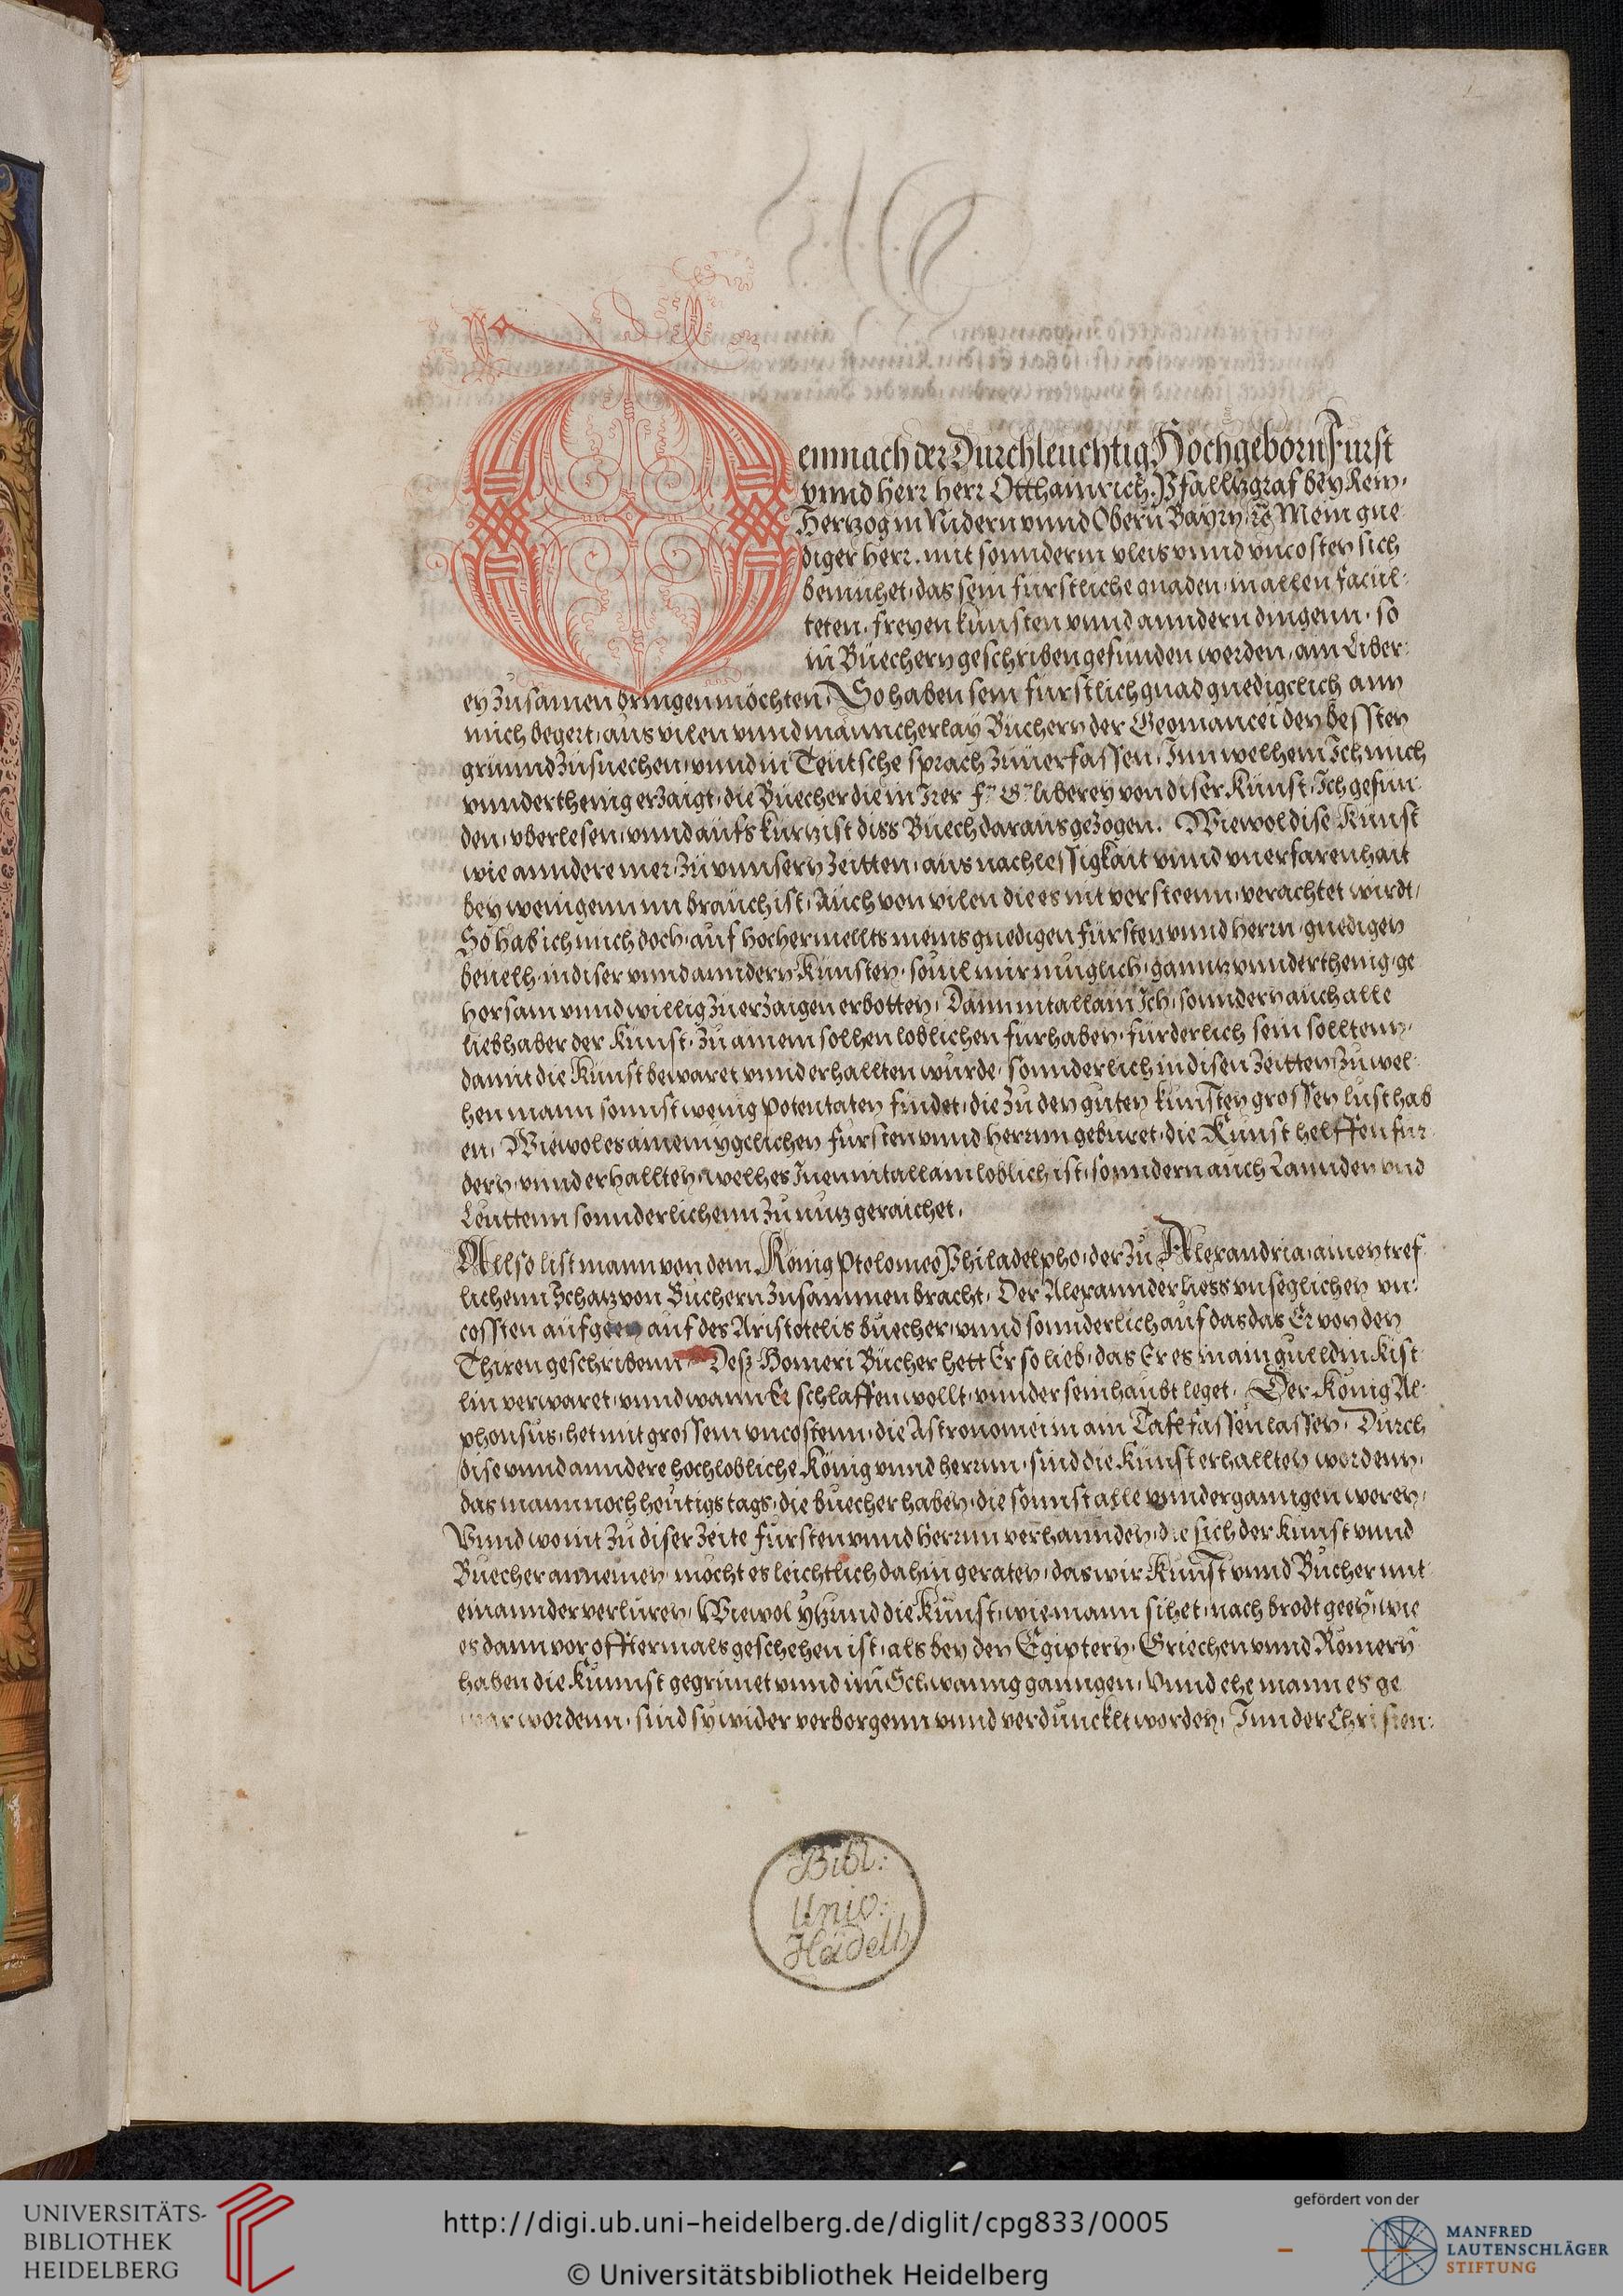 Demnach der Durchleuchtig Hochgeborn Furst
vnnd herr herr Otthainrich, Pfalltzgraf bey Rein,
Hertzog in Nidern vnnd Obern Bayrn, rc̃ Mein gne
diger herr, mit sonnderm vleis vnnd vncosten sich
bemuhet, das sein furstliche gnaden, in allen facul-
teten, freyen kunsten vnnd anndern dingenn, so
in Büechern geschriben gefunden werden, ain Liber-
ey zusamen bringen möchten, So haben sein furstlich gnad gnedigclich ann
mich begert, aus vilen vnnd manncherlay Büchern der Geomancei den bessten
grunnd zusuechen, vnnd in Teutsche sprach zuuerfassen, Inn welhem Ich mich
vnnderthenig erzaigt, die Büecher die in Irer f. G. liberey von diser Kunst, Ich gefun-
den, vberlesen, vnnd aufs kurtzist diss Büech daraus gezogen. Wiewol dise Kunst
wie anndere mer, zu vnnsern Zeitten, aus nachlessigkait vnnd vnerfarenhait
bey wenigenn im brauch ist, Auch von vilen die es nit versteenn, verachtet wirdt,
So hab ich mich doch, auf hochermellts meins gnedigen fürsten vnnd herrn, gnedigen
beuelh, in diser vnnd anndern Künsten, souil mir muglich, ganntz vnnderthenig, ge
horsam vnnd willig zu erzaigen erbotten, Damit nit allain Ich, sonndern auch alle
liebhaber der Kunst, zu ainem sollhen loblichen fürhaben, fürderlich sein solltenn,
damit die Kunst bewaret vnnd erhallten wurde, sonnderlich in disen Zeitten, zu wel-
hen mann sonnst wenig potentaten findet, die zu den guten kunsten grossen lust hab
en, Wiewol es ainem ygclichen fursten vnnd herrnn geburet, die Kunst helffen fur-
dern, vnnd erhallten, welhes Inen nit allain loblich ist, sonndern auch Lannden vnd
Leuttenn sonnderlichenn zu nutz geraichet.
Allso list mann von dem König Ptolomeo Philadelpho, der zu Alexandria, ainen tref-
lichenn Schatz von Büchern zusammen bracht, Der Alexannder liess vnseglichen vn-
cossten aufgeen auf des Aristotelis buecher, vnnd sonnderlich auf das das Er von den
Thiren geschribenn, Desz Homeri Bücher hett Er so lieb, das Er es in ain gulldin Kist
lin verwaret, vnnd wann Er schlaffen wollt, vnnder sein haubt leget, Der König Al-
phonsus, het mit grossem vncostenn, die Astronomei in ain Tafl fassen lassen, Durch
dise vnnd anndere hochlobliche König vnnd herrnn, sind die Künst erhallten wordenn,
das mann noch heutigs tags, die buecher haben, die sonnst alle vnndergangen weren,
Vnnd wo nit zu diser Zeite fürsten vnnd herrnn verhannden, die sich der kunst vnnd
Buecher annemen, mocht es leichtlich dahin geraten, das wir Kunst vnnd Bücher mit
einannder verluren, Wiewol ytzund die Künst, wie mann sihet, nach brodt geen, wie
es dann vor offtermals geschehen ist, als bey den Egiptern, Griechen vnnd Römern
haben die Kunnst gegrunet vnnd im Schwanng ganngen, Vnnd ehe mann es ge
war wordenn, sind sy wider verborgenn vnnd verdunckelt worden, Inn der Christen-
Bibl:
Univ:
Heidelb
UNIVERSITÄTS-
BIBLIOTHEK
HEIDELBERG
http://digi.ub.uni-heidelberg.de/diglit/cpg833/0005
© Universitätsbibliothek Heidelberg
gefördert von der
MANFRED
LAUTENSCHLÄGER
STIFTUNG